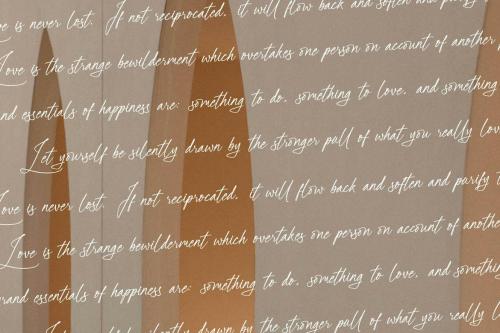 ve is never lost. If not reciprocated, it will flow back and soften and purify
Love is the strange bewilderment which overtakes one person on account of another
and essentials of happiness are: something to do, something to love, and something
Let yourself be silently drawn by the stronger pull of what you really lov
Love is never lost. If not reciprocated, it will flow back and soften and purify t
Love is the strange bewilderment which overtakes one person on account of anothe
rand essentials of happiness are: something to do, something to love, and somethin
Let yourself be silently drawn by the stronger pull of what you really l